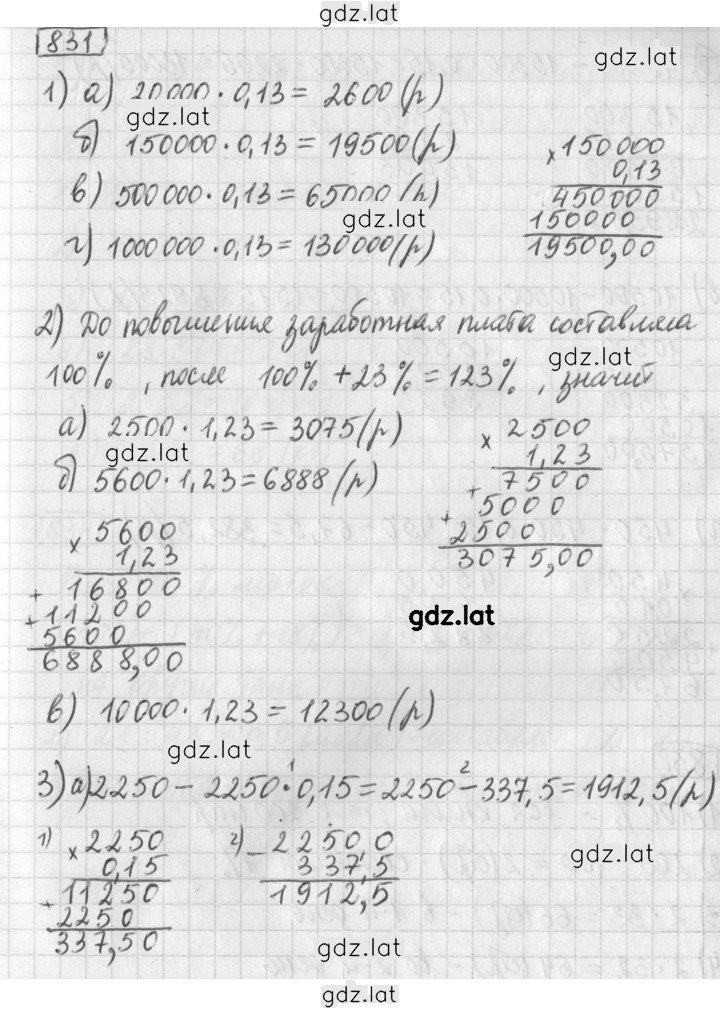 gdz.lat
831
gdz.lat
1) а) 20000 · 0,13 = 2600 (р)
gdz.lat
б) 150000 · 0,13 = 19500 (р)
× 150000
0,13
450000
150000
19500,00
в) 500000 · 0,13 = 65000 (р)
gdz.lat
г) 1000000 · 0,13 = 130000 (р)
2) До повышения заработная плата составляла
gdz.lat
100% , после 100% + 23% = 123% , значит
а) 2500 · 1,23 = 3075 (р)
gdz.lat
б) 5600 · 1,23 = 6888 (р)
× 2500
1,23
+ 7500
+ 5000
2500
3075,00
× 5600
1,23
+ 16800
+ 11200
5600
6888,00
gdz.lat
в) 10000 · 1,23 = 12300 (р)
gdz.lat
3) а) 2250 − 2250 ·¹ 0,15 = 2250 −² 337,5 = 1912,5 (р)
1) × 2250
0,15
+ 11250
2250
337,50
2) − 2250 0
337,5
1912,5
gdz.lat
gdz.lat
gdz.lat